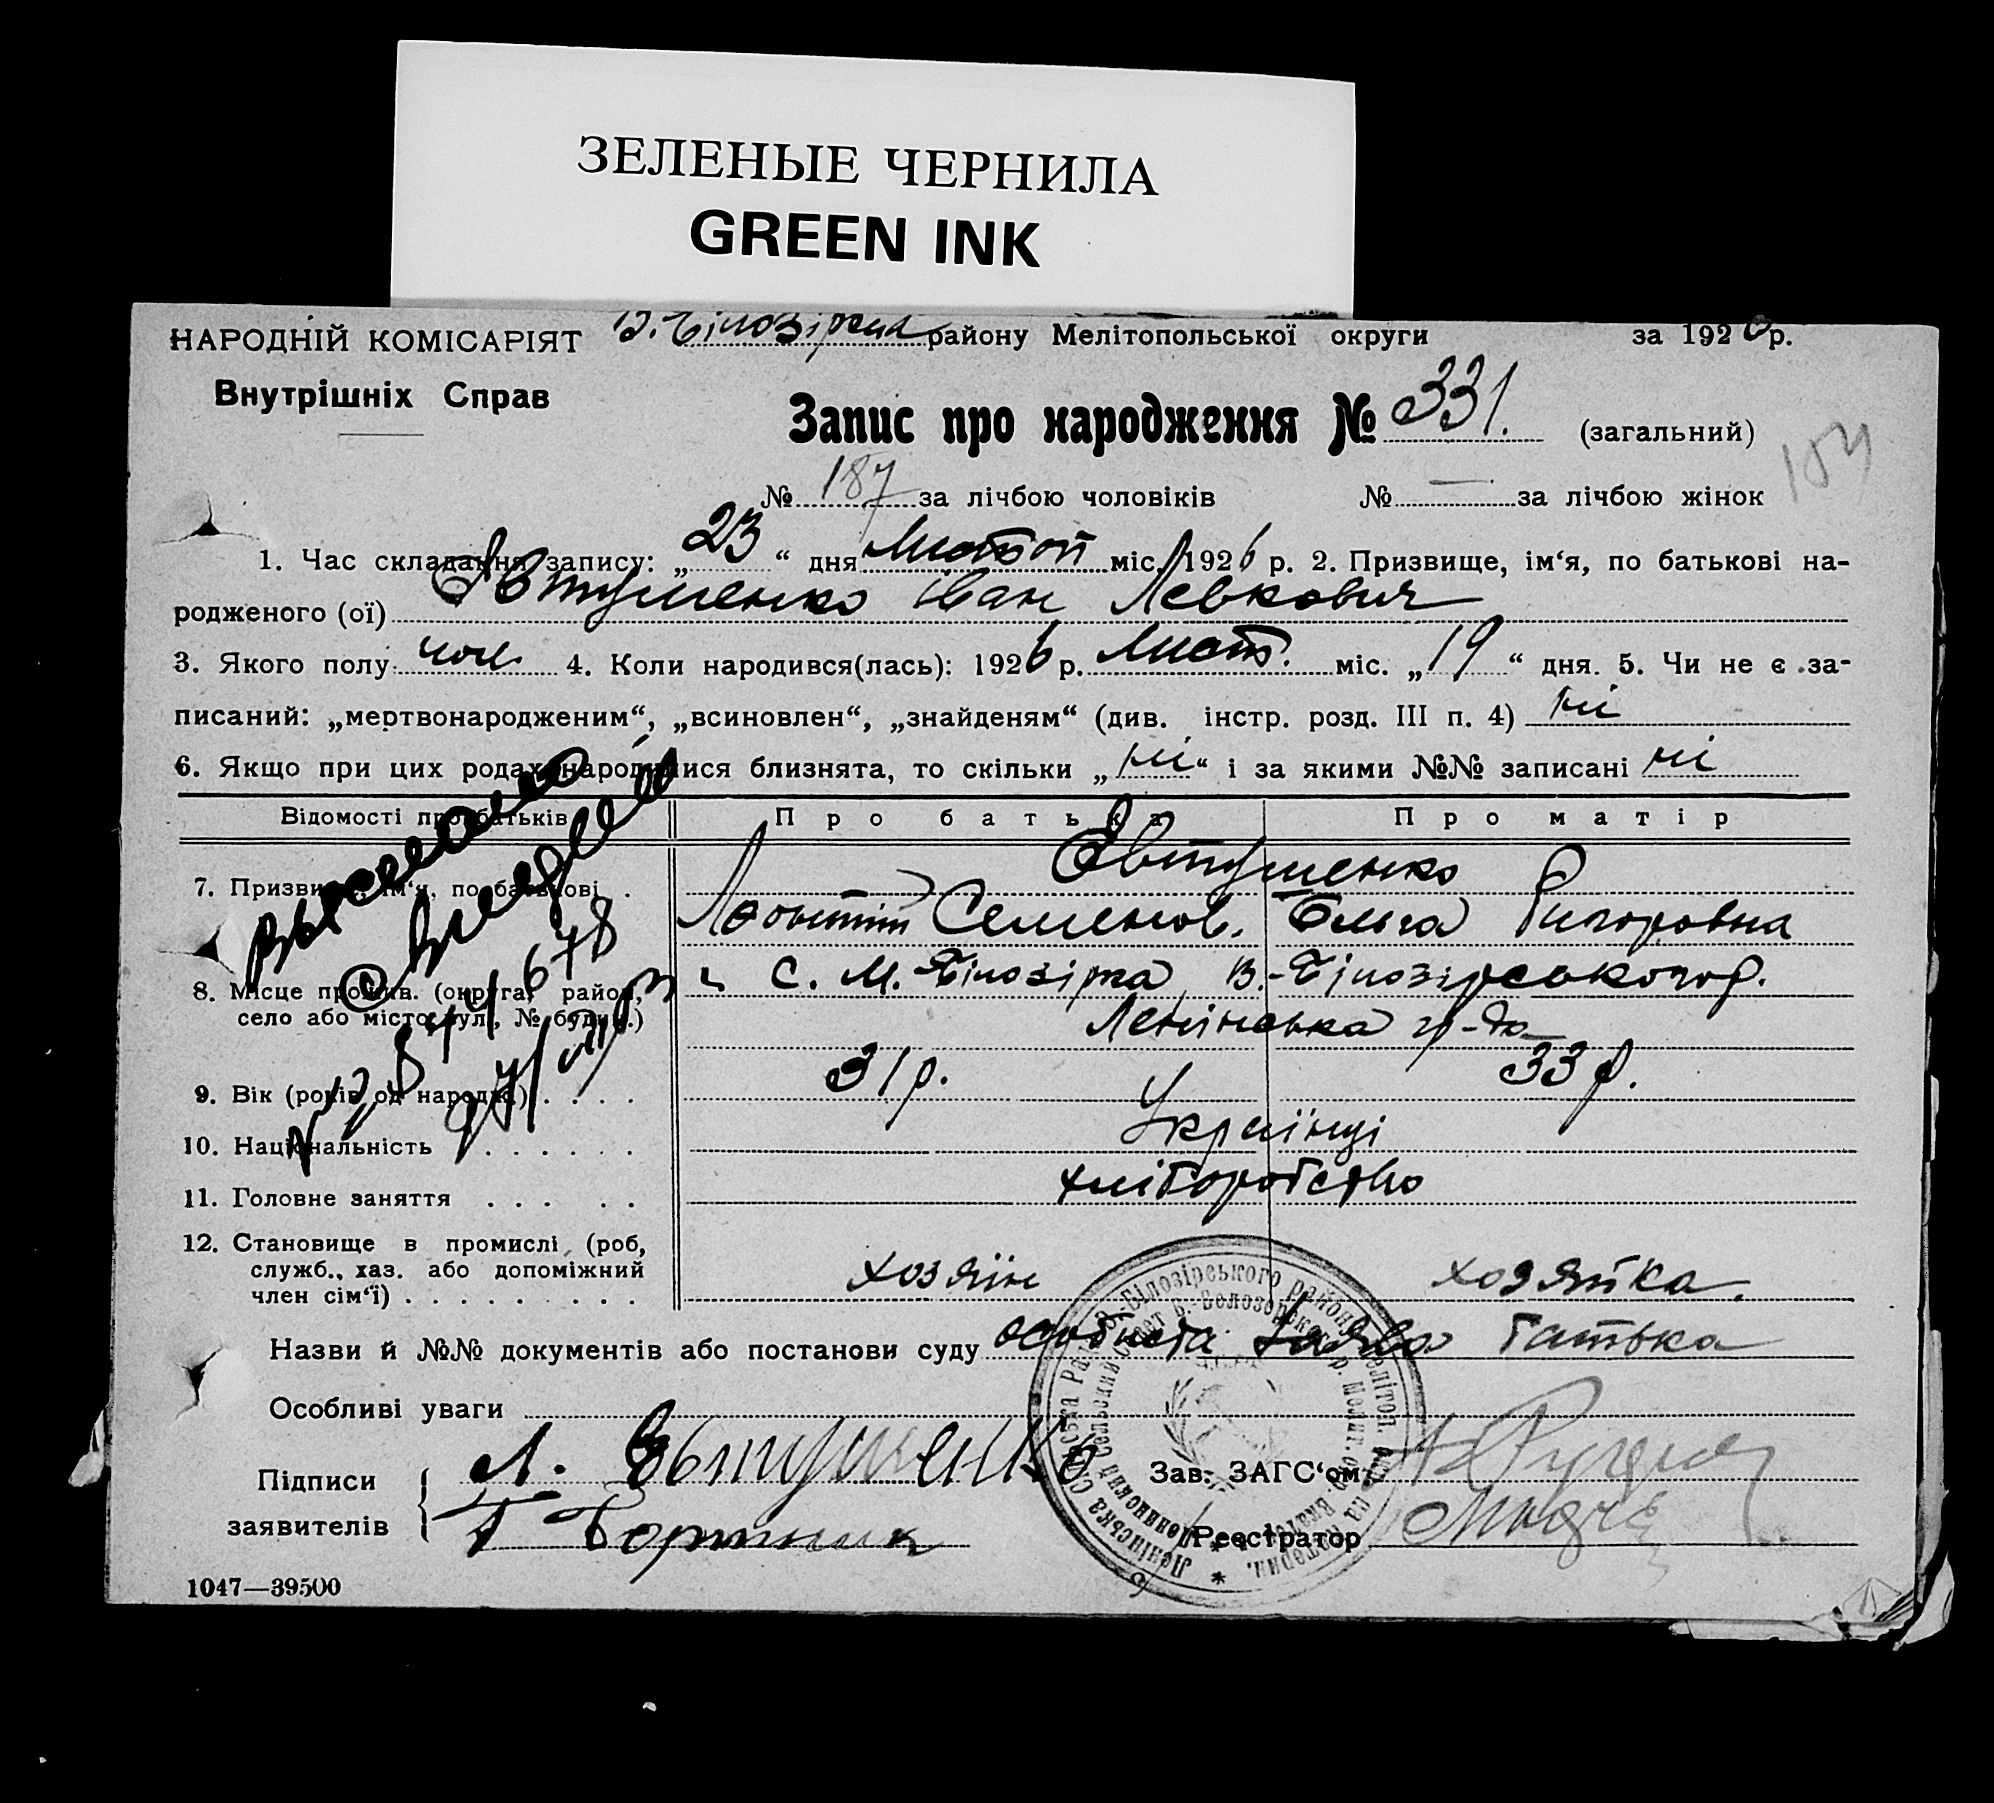 ЗЕЛЕНЫЕ ЧЕРНИЛА
GREEN INK
НАРОДНІЙ КОМІСАРІЯТ В. Білозірка району Мелітопольської округи за 1926 р.
Внутрішніх Справ
Запис про народження № 331. (загальний)
184
№ 187 за лічбою чоловіків № — за лічбою жінок
1. Час складання запису: „23“ дня Листоп міс. 1926 р. 2. Призвище, ім‘я, по батькові на-
родженого (ої) Автушенко Іван Левкович
3. Якого полу: чол. 4. Коли народився(лась): 1926 р. Лист. міс. „19“ дня. 5. Чи не є за-
писаний: „мертвонародженим“, „всиновлен“, „знайденям“ (див. інстр. розд. III п. 4) ні
6. Якщо при цих родах народилися близнята, то скільки „ні“ і за якими №№ записані ні
Відомості про батьків Про батька Про матір
Явтушенко
7. Призвище, ім‘я, по батькові
Леонтій Семенов. Ольга Григоровна
8. Місце прожив. (округа, район, с. М.-Білозірка В.-Білозірського р.
село або місто, вул., № будин.)
Ленінська гр-да
9. Вік (років од народж.) 31 р. 33 р.
10. Національність Українці
11. Головне заняття хліборобство
12. Становище в промислі (роб,
служб., хаз. або допоміжний
член сім‘ї) хозяїн хозяйка.
Назви й №№ документів або постанови суду особиста заява батька
Особливі уваги
Підписи
заявителів
Л. Явтушенко
Г Бортник
Зав. ЗАГС‘ом
Реєстратор
1047—39500